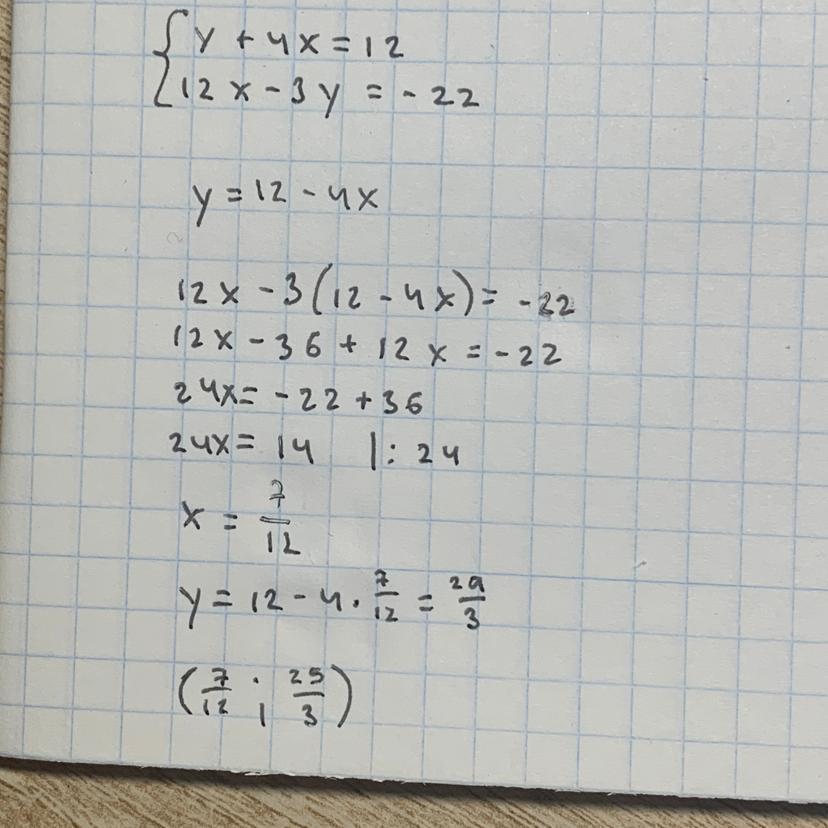 { y + 4x = 12
12x - 3y = -22
y = 12 - 4x
12x - 3(12 - 4x) = -22
12x - 36 + 12x = -22
24x = -22 + 36
24x = 14 |: 24
x = 7/12
y = 12 - 4 · 7/12 = 29/3
(7/12 ; 25/3)